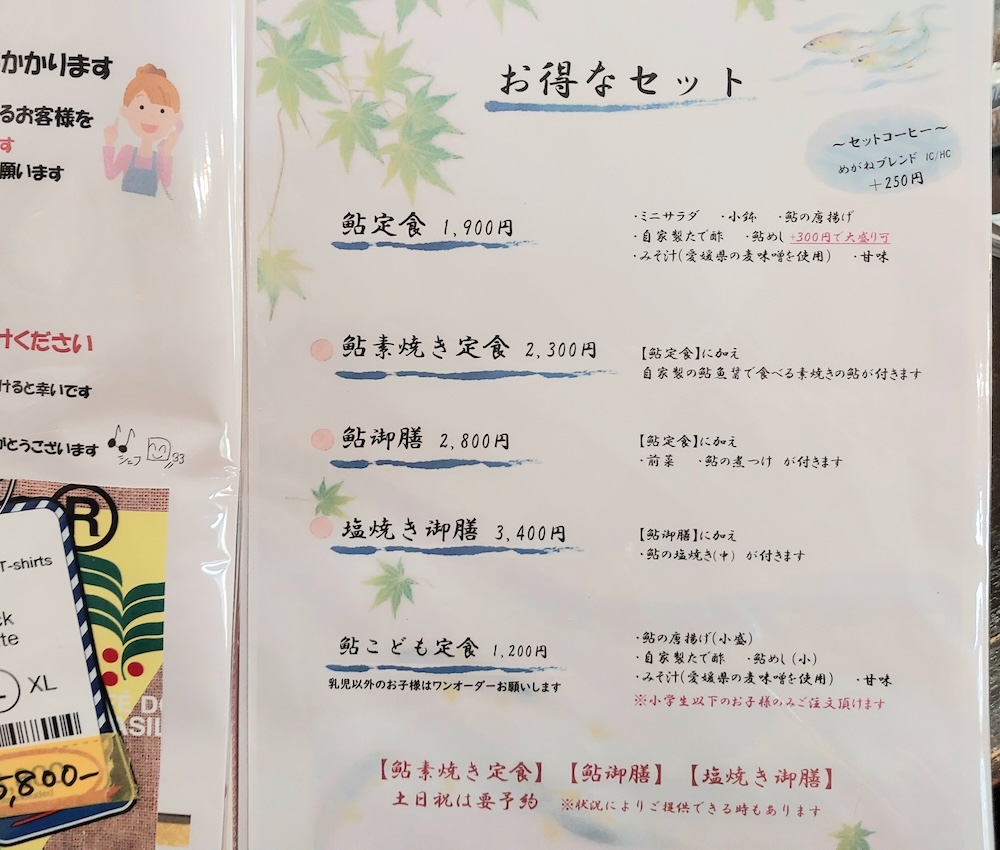 かかります
るお客様を
す
願います
けください
けると幸いです
がとうございます
シェフ
R
T-shirts
XL
5,800-
お得なセット
~セットコーヒー~
めがねブレンド IC/HC
+250円
鮎定食 1,900円
・ミニサラダ ・小鉢 ・鮎の唐揚げ
・自家製たで酢 ・鮎めし +300円で大盛り可
・みそ汁(愛媛県の麦味噌を使用) ・甘味
鮎素焼き定食 2,300円
【鮎定食】に加え
自家製の鮎魚醤で食べる素焼きの鮎が付きます
鮎御膳 2,800円
【鮎定食】に加え
・前菜 ・鮎の煮つけ が付きます
塩焼き御膳 3,400円
【鮎御膳】に加え
・鮎の塩焼き(中) が付きます
鮎こども定食 1,200円
乳児以外のお子様はワンオーダーお願いします
・鮎の唐揚げ(小盛)
・自家製たで酢 ・鮎めし(小)
・みそ汁(愛媛県の麦味噌を使用) ・甘味
※小学生以下のお子様のみご注文頂けます
【鮎素焼き定食】【鮎御膳】【塩焼き御膳】
土日祝は要予約 ※状況によりご提供できる時もあります